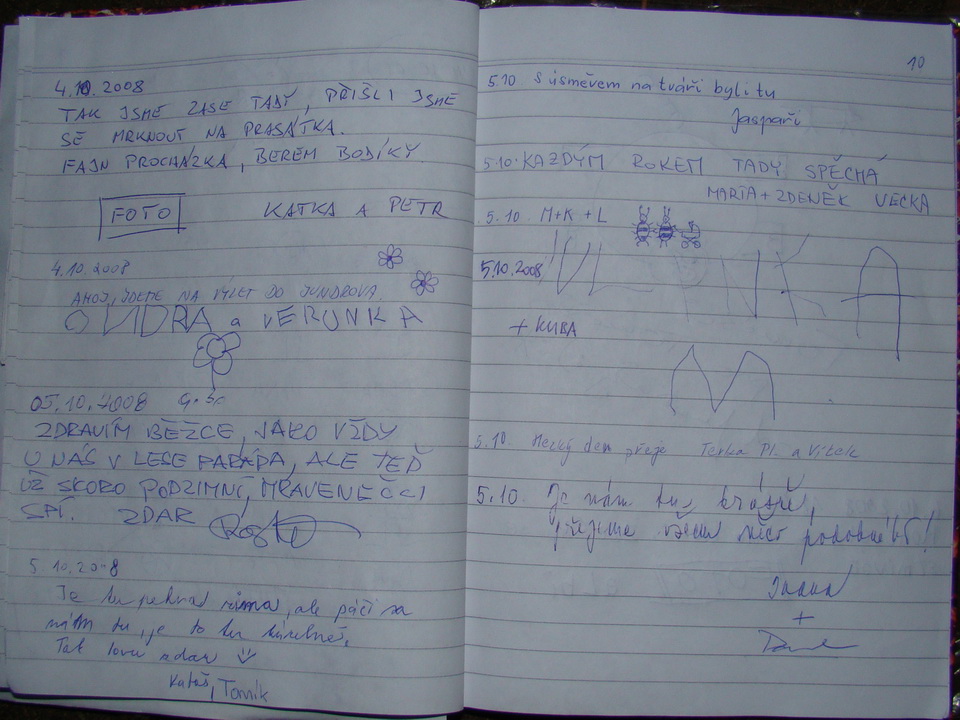 4.10.2008
TAK JSME ZASE TADY, PŘIŠLI JSME
SE MRKNOUT NA PRASÁTKA.
FAJN PROCHÁZKA, BEREM BODÍKY
FOTO KATKA A PETR
4.10.2008
AHOJ, JDEME NA VÝLET DO JUNDROVA.
ONDRA a VERUNKA
05.10.2008
ZDRAVÍM BĚŽCE, JAKO VŽDY
U NÁS V LESE PARÁDA, ALE TEĎ
UŽ SKORO PODZIMNÍ, MRAVENEČCI
SPÍ. ZDAR
5.10.2008
Je tu pekná zima, ale páči sa
nám tu, je to tu
Tak lovu zdar
Katáš, Tomík
10
5.10 S úsměvem na tváři byli tu
Jaspaři
5.10. KAŽDÝM ROKEM TADY SPĚCHÁ
MARTA + ZDENĚK VECKA
5.10. M+K + L
5.10.2008
+ KUBA
5.10 Hezký den přeje Terka Pl. a Vítek
5.10. Je nám tu krásně,
přejeme všem něco podobného!
Ivana
+